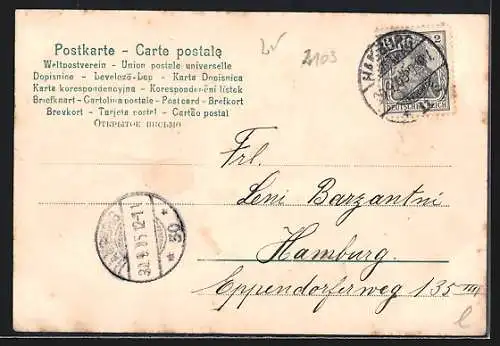 Postkarte - Carte postale
Weltpostverein - Union postale universelle
Dopisnice - Levelező-Lap - Karta Dopisnica
Karta korespondencyjna - Korespondenční lístek
Briefkaart - Cartolina postale - Postcard - Brefkort
Brevkort - Tarjeta postal - Cartão postal
Открытое письмо
2103
HAMBURG
2
DEUTSCHES REICH
Frl.
Leni Barzantni
Hamburg.
Eppendorferweg 135 III
* 30 *